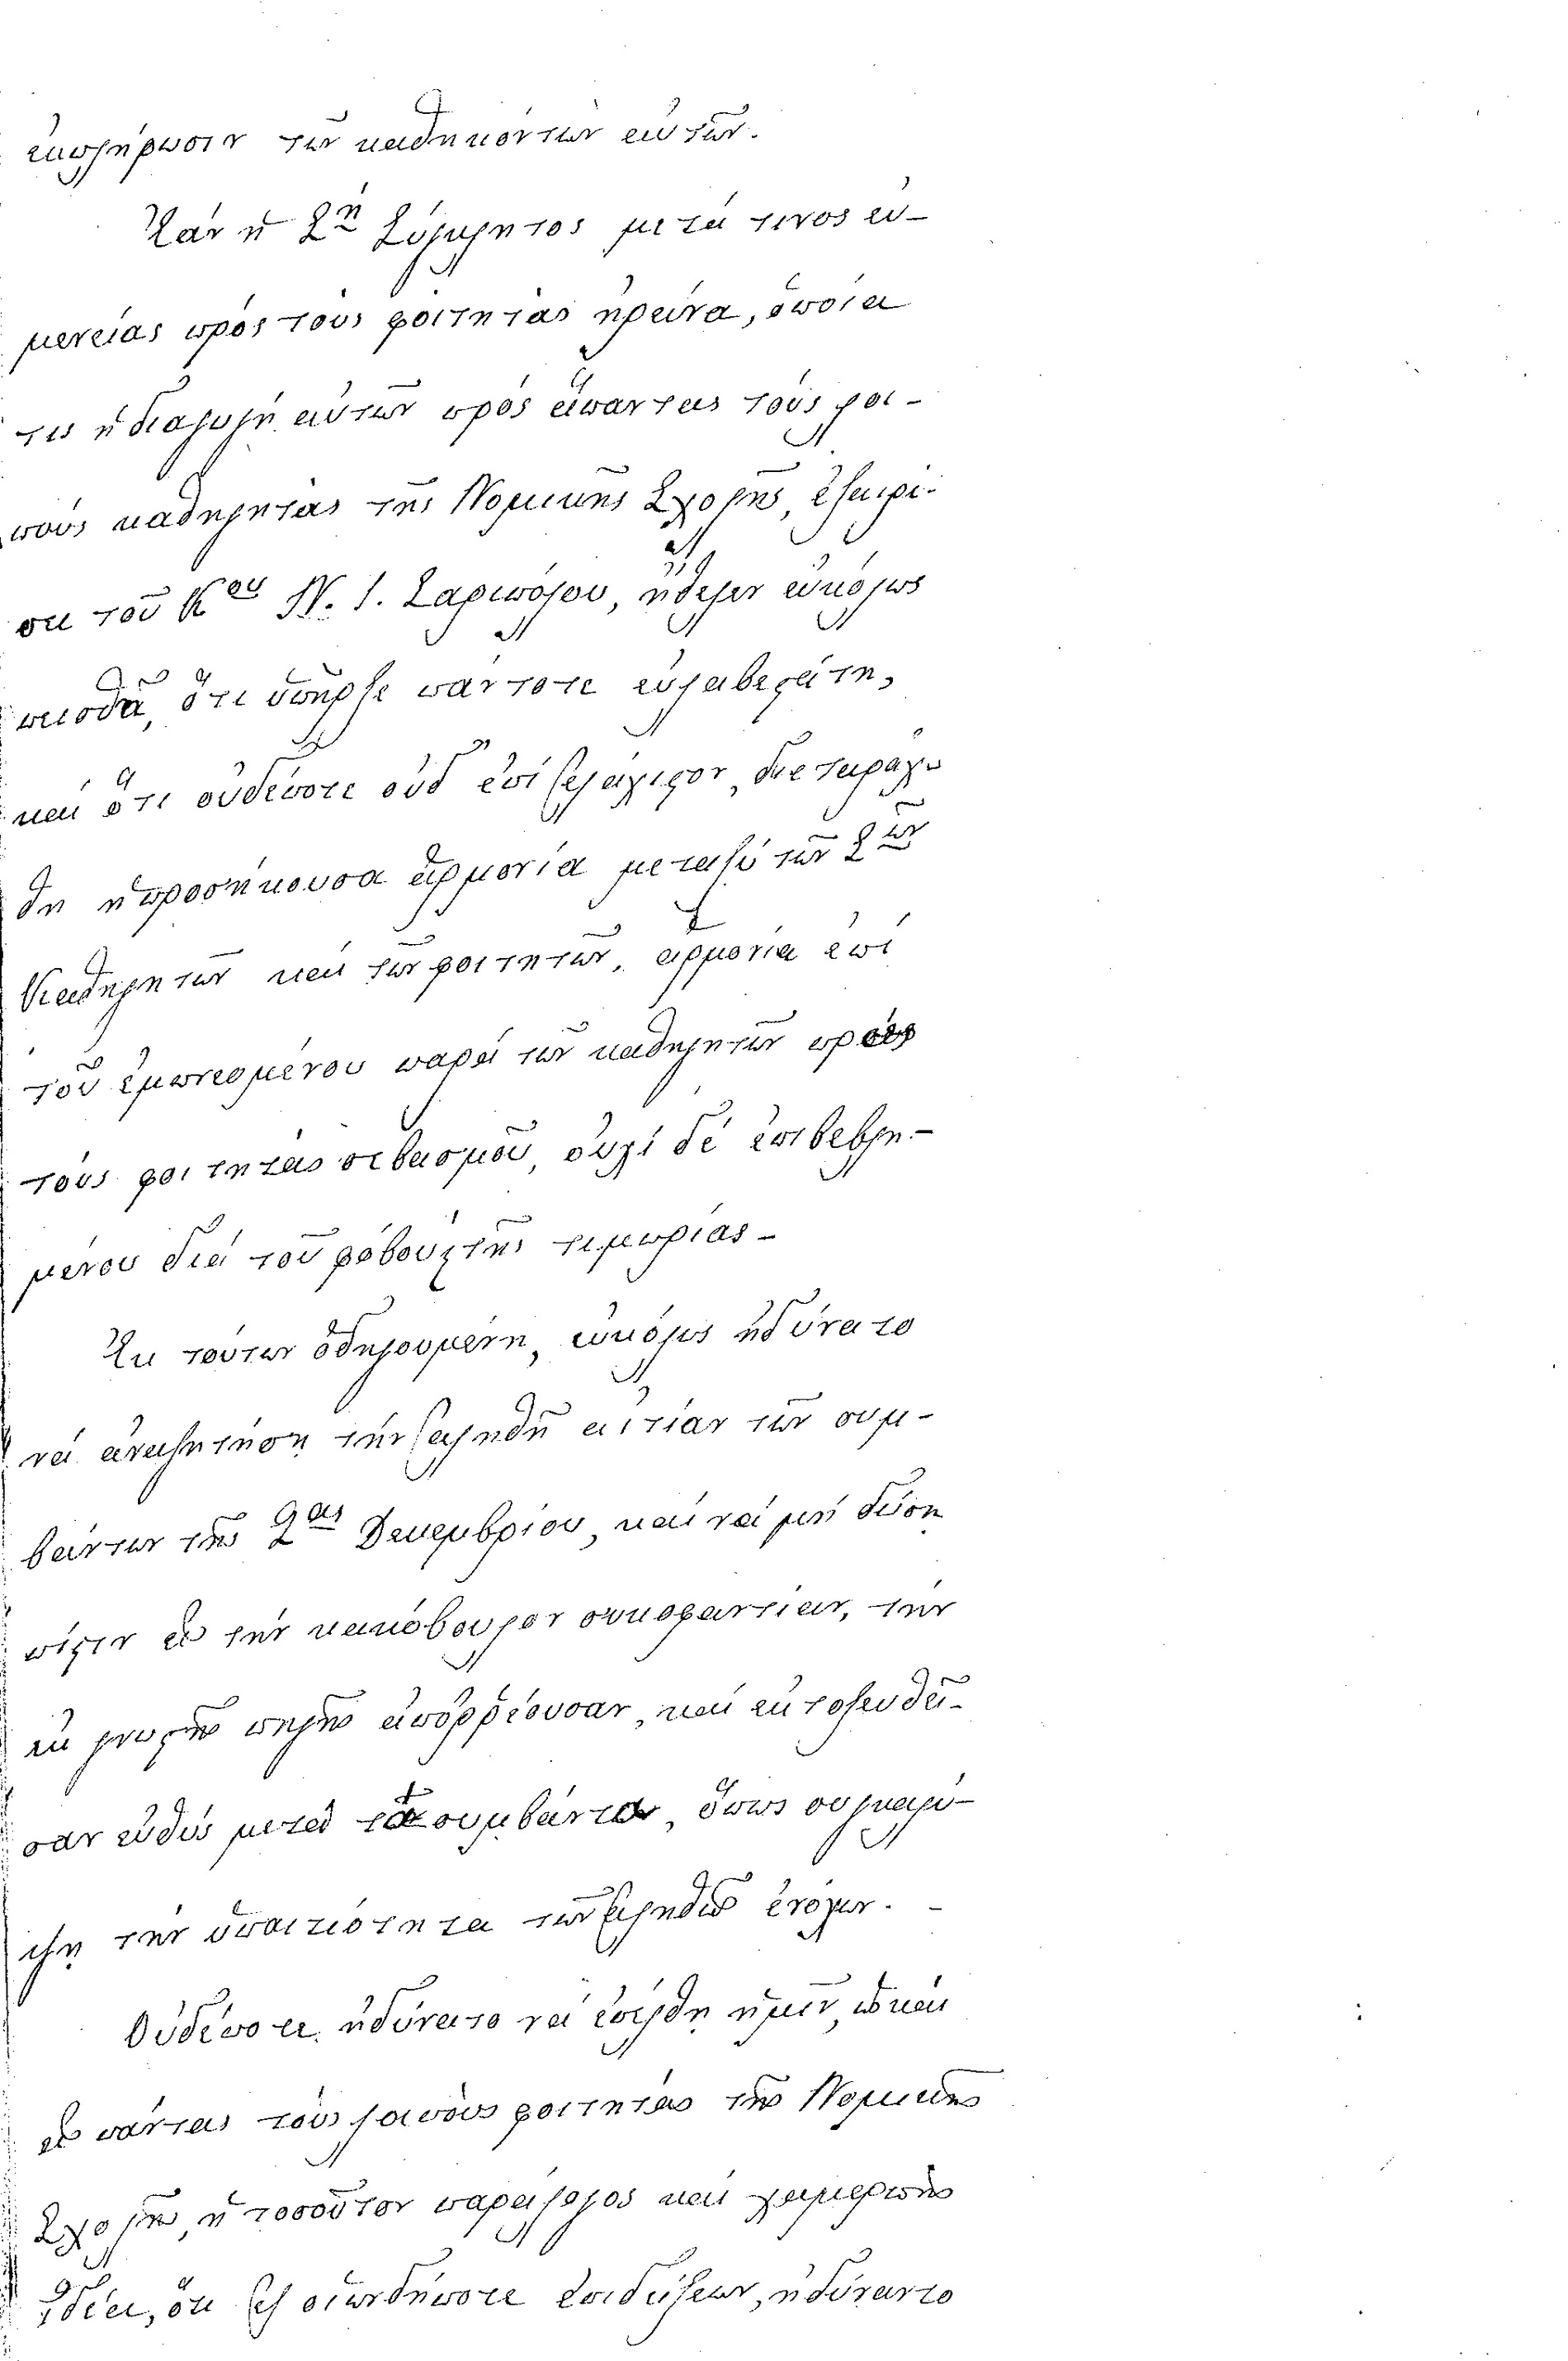 ἐκπλήρωσιν τῶν καθηκόντων αὐτῶν.
Ἐὰν ἡ Σὴ Σύγκλητος μετά τινος εὐ-
μενείας πρὸς τοὺς φοιτητὰς ἠρεύνα, ὁποία
τις ἡ διαγωγὴ αὐτῶν πρὸς ἅπαντας τοὺς λοι-
ποὺς καθηγητὰς τῆς Νομικῆς Σχολῆς, ἐξαιρέ-
σει τοῦ Κου Ν. Ι. Σαριπόλου, ἤθελεν εὐκόλως
πεισθῆ, ὅτι ὑπῆρξε πάντοτε εὐλαβεστάτη,
καὶ ὅτι οὐδέποτε οὐδ' ἐπ' ἐλάχιστον διεταράχ-
θη ἡ προσήκουσα ἁρμονία μεταξὺ τῶν Σῶν
Καθηγητῶν καὶ τῶν φοιτητῶν, ἁρμονία ἐπὶ
τοῦ ἐμπνεομένου παρὰ τῶν καθηγητῶν πρὸς
τοὺς φοιτητὰς σεβασμοῦ, οὐχὶ δὲ ἐπιβεβλη-
μένου διὰ τοῦ φόβου τῆς τιμωρίας –
Ἐκ τούτων ὁδηγουμένη, εὐκόλως ἠδύνατο
νὰ ἀναζητήσῃ τὴν ἀληθῆ αἰτίαν τῶν συμ-
βάντων τῆς 2ας Δεκεμβρίου, καὶ νὰ μὴ δώσῃ
πίστιν εἰς τὴν κακόβουλον συκοφαντίαν, τὴν
ἐκ γνωστῆς πηγῆς ἀπορρέουσαν, καὶ ἐκτοξευθεῖ-
σαν εὐθὺς μετὰ τὰ συμβάντα, ὅπως συγκαλύ-
ψῃ τὴν ὑπαιτιότητα τῶν ἀληθῶς ἐνόχων. –
Οὐδέποτε ἠδύνατο νὰ ἐπέλθῃ ἡμῖν, ὡς καὶ
εἰς πάντας τοὺς λοιποὺς φοιτητὰς τῆς Νομικῆς
Σχολῆς, ἡ τοσοῦτον παράλογος καὶ χαμερπὴς
ἰδέα, ὅτι ἐξ οιωνδήποτε ἐπιδείξεων, ἠδύναντο